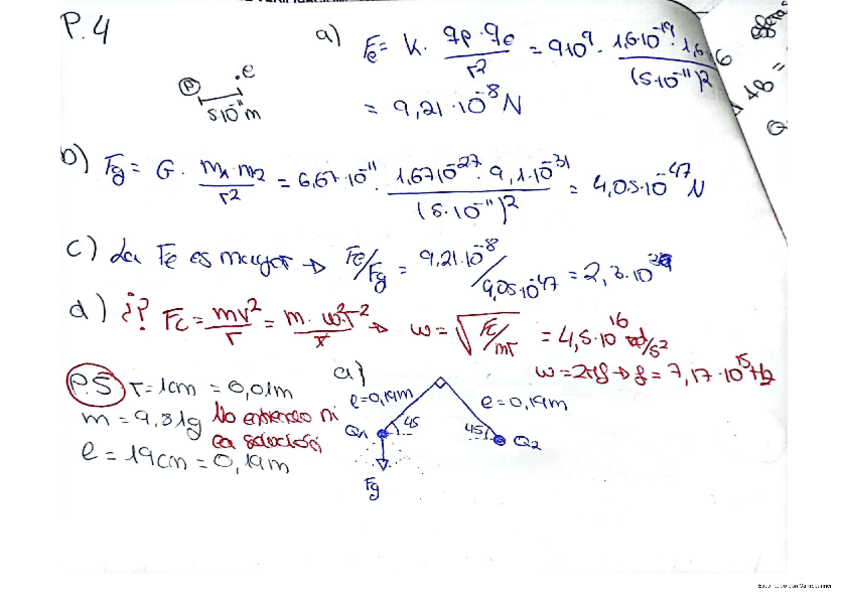 P.4
a) Fe = K · qp·qe / r² = 9·10⁹ · 1,6·10⁻¹⁹ · 1,6 / (5·10⁻¹¹)²
P e
5·10⁻¹¹ m
= 9,21·10⁻⁸ N
b) Fg = G · m1·m2 / r² = 6,67·10⁻¹¹ · 1,67·10⁻²⁷ · 9,1·10⁻³¹ / (5·10⁻¹¹)² = 4,05·10⁻⁴⁷ N
c) La Fe es mayor → Fe/Fg = 9,21·10⁻⁸ / 4,05·10⁻⁴⁷ = 2,3·10
d) ¿? Fc = mv²/r = m·w²·r²/r → w = √Fc/mr = 4,5·10¹⁶ rd/s²
w = 2πf → f = 7,17·10¹⁵ Hz
P.5 r = 1cm = 0,01m
a)
m = 9,81g No entiendo ni
la solución
l = 19cm = 0,19m
l = 0,19m
l = 0,19m
Q1 45
45 Q2
Fg
48 =
Q